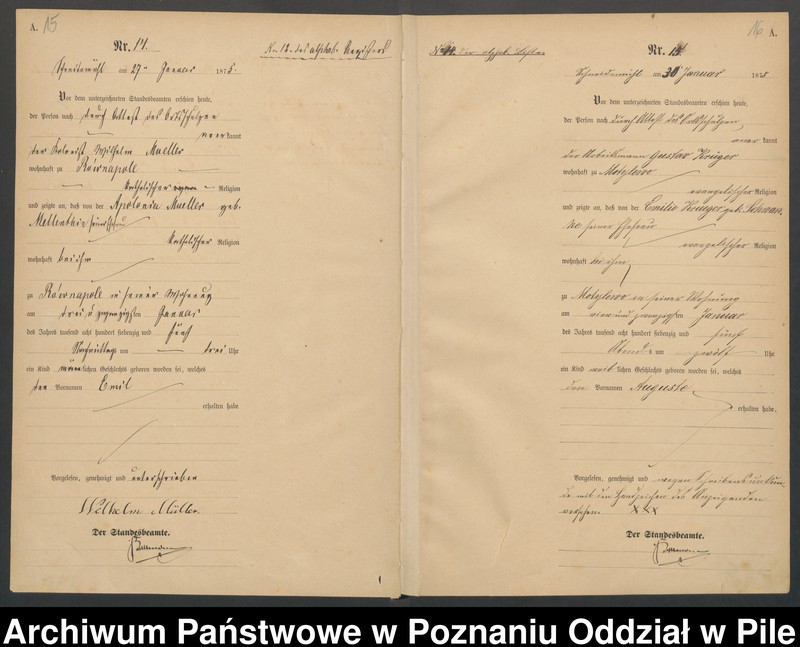 A. 15
Nr. 14.
No 12. des alphab. Registers
am 27ten Januar 1875.
Vor dem unterzeichneten Standesbeamten erschien heute,
der Person nach durch Attest des Ortsschulzen
kannt
der Kolonist Wilhelm Mueller
wohnhaft zu
katholischer Religion
und zeigte an, daß von der Apolonia Mueller geb.
katholischer Religion
wohnhaft bei ihm
zu in seiner Wohnung
am drei u zwanzigsten Januar
des Jahres tausend acht hundert siebenzig und fünf
Nachmittags um drei Uhr
ein Kind männlichen Geschlechts geboren worden sei, welches
den Vornamen Emil
erhalten habe
Vorgelesen, genehmigt und unterschrieben
Wilhelm Müller.
Der Standesbeamte.
16 A.
Nr.
Schneidemühl am 30 Januar 1875
Vor dem unterzeichneten Standesbeamten erschien heute,
der Person nach durch Attest des Ortsschulzen,
kannt
der Arbeitsmann Gustav Krüger
wohnhaft zu Motylewo
evangelischer Religion
und zeigte an, daß von der Emilie Krueger geb.
seiner Ehefrau
evangelischer Religion
wohnhaft bei ihm
zu Motylewo in seiner Wohnung
am vier und zwanzigsten Januar
des Jahres tausend acht hundert siebenzig und fünf
Abends um zwölf Uhr
ein Kind weiblichen Geschlechts geboren worden sei, welches
den Vornamen Auguste
erhalten habe.
Vorgelesen, genehmigt und wegen Schreibensunkun-
de mit den Handzeichen des Anzeigenden
versehen XXX
Der Standesbeamte.
Archiwum Państwowe w Poznaniu Oddział w Pile